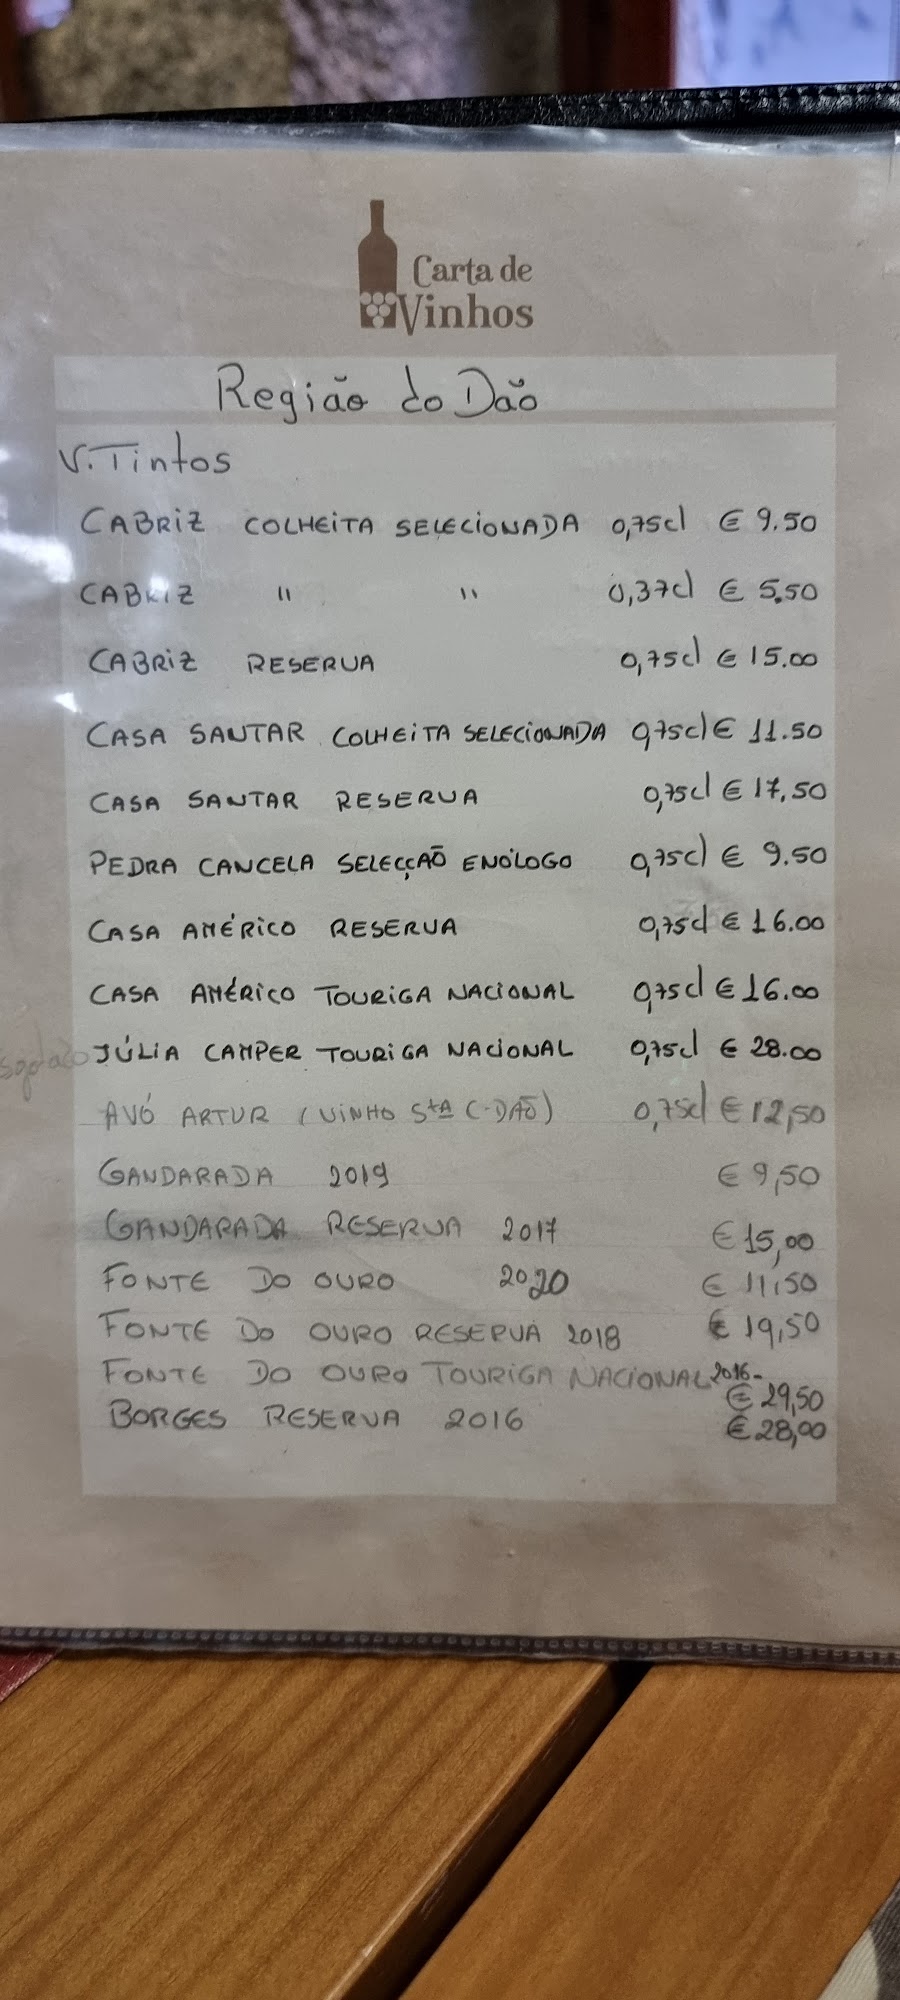 Carta de
Vinhos
Região do Dão
V. Tintos
CABRIZ COLHEITA SELECIONADA 0,75cl € 9.50
CABRIZ " " 0,37cl € 5.50
CABRIZ RESERVA 0,75cl € 15.00
CASA SANTAR COLHEITA SELECIONADA 0,75cl € 11.50
CASA SANTAR RESERVA 0,75cl € 17,50
PEDRA CANCELA SELECÇÃO ENÓLOGO 0,75cl € 9.50
CASA AMÉRICO RESERVA 0,75cl € 16.00
CASA AMÉRICO TOURIGA NACIONAL 0,75cl € 16.00
JÚLIA CAMPER TOURIGA NACIONAL 0,75cl € 28.00
AVÓ ARTUR (VINHO STA C-DÃO) 0,75cl € 12,50
GANDARADA 2019 € 9,50
GANDARADA RESERVA 2017 € 15,00
FONTE DO OURO 2020 € 11,50
FONTE DO OURO RESERVA 2018 € 19,50
FONTE DO OURO TOURIGA NACIONAL 2016-
€ 29,50
BORGES RESERVA 2016 € 28,00